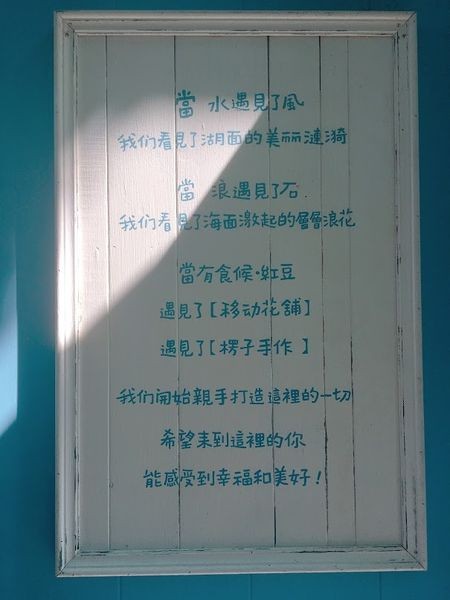 當 水遇見了風
我们看見了湖面的美丽漣漪
當 浪遇見了石
我们看見了海面激起的層層浪花
當有食候·紅豆
遇見了[移动花舖]
遇見了[楞子手作]
我们開始親手打造這裡的一切
希望来到這裡的你
能感受到幸福和美好！